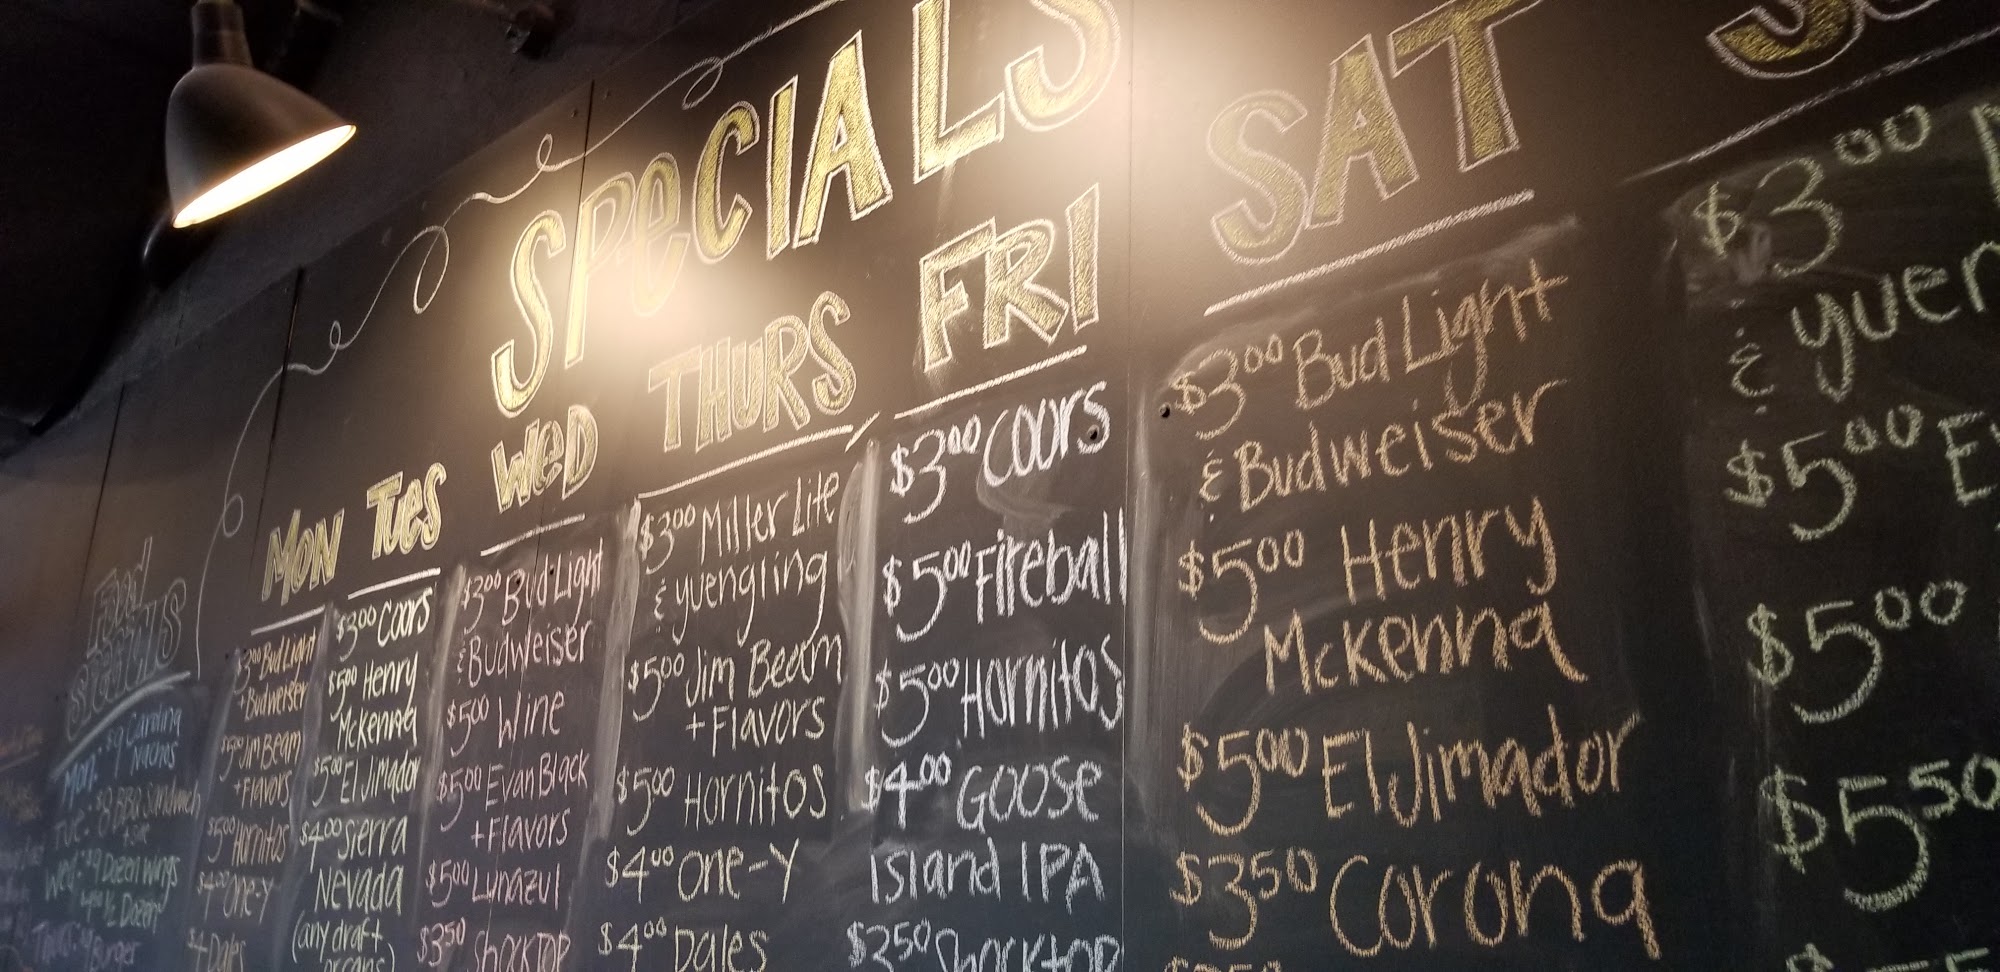 SPECIALS
FOOD
SPECIALS
Mon. $9 Carnitas
Nachos
Tue. $9 BBQ Sandwich
Wed. $9 Dozen Wings
½ Dozen
Thurs.
Burger
MON
$3.00 Bud Light
+ Budweiser
$5.00 Jim Beam
+ Flavors
$5.00 Hornitos
$4.00 One-Y
$4 Dales
Tues
$3.00 Coors
$5.00 Henry
McKenna
$5.00 El Jimador
$4.00 Sierra
Nevada
(any draft
WeD
$3.00 Bud Light
& Budweiser
$5.00 Wine
$5.00 Evan Black
+ Flavors
$5.00 Lunazul
$3.50 Shocktop
THURS
$3.00 Miller Lite
& Yuengling
$5.00 Jim Beam
+ Flavors
$5.00 Hornitos
$4.00 One-Y
$4.00 Dales
FRI
$3.00 Coors
$5.00 Fireball
$5.00 Hornitos
$4.00 Goose
Island IPA
$3.50 Shocktop
SAT
$3.00 Bud Light
& Budweiser
$5.00 Henry
McKenna
$5.00 El Jimador
$3.50 Corona
$3.00
& Yuen
$5.00
$5.00
$5.50